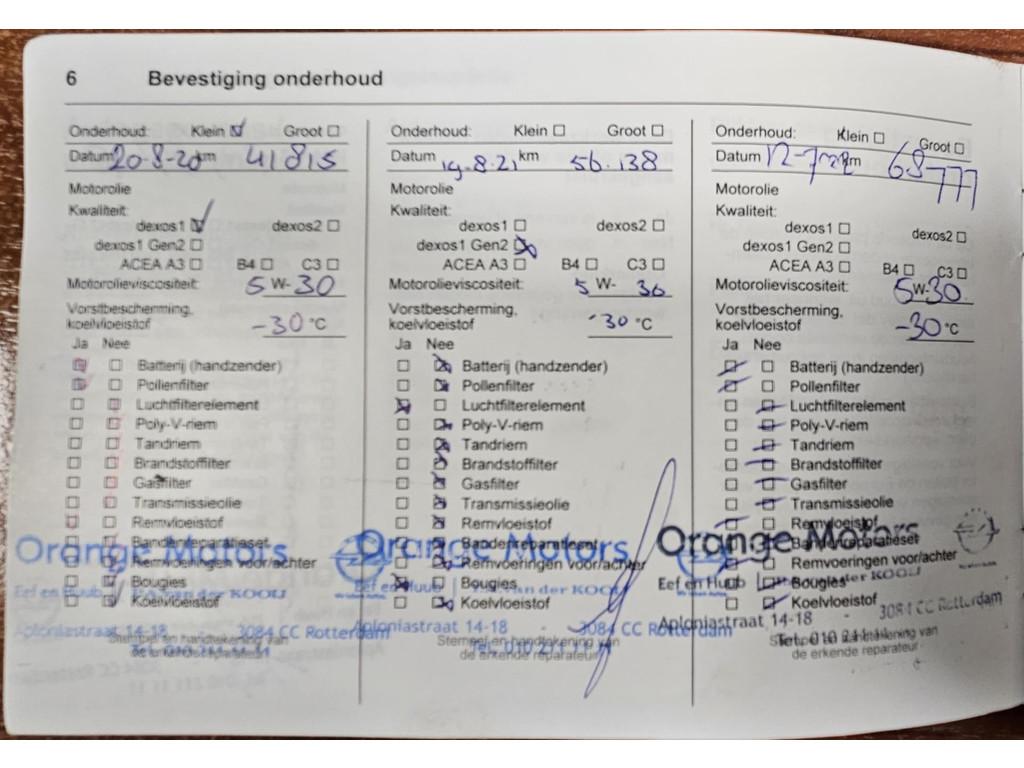 6 Bevestiging onderhoud
Onderhoud: Klein Groot
Datum 20-8-20 km 41815
Motorolie
Kwaliteit:
dexos1 dexos2
dexos1 Gen2
ACEA A3 B4 C3
Motorolieviscositeit: 5 W- 30
Vorstbescherming,
koelvloeistof -30 °C
Ja Nee
Batterij (handzender)
Pollenfilter
Luchtfilterelement
Poly-V-riem
Tandriem
Brandstoffilter
Gasfilter
Transmissieolie
Remvloeistof
Bandenreparatieset
Remvoeringen voor/achter
Bougies
Koelvloeistof
Orange Motors
Eef en Huub van der KOOIJ
Aploniastraat 14-18 3084 CC Rotterdam
Stempel en handtekening van
de erkende reparateur
Onderhoud: Klein Groot
Datum 19.8.21 km 56.138
Motorolie
Kwaliteit:
dexos1 dexos2
dexos1 Gen2
ACEA A3 B4 C3
Motorolieviscositeit: 5 W- 30
Vorstbescherming,
koelvloeistof -30 °C
Ja Nee
Batterij (handzender)
Pollenfilter
Luchtfilterelement
Poly-V-riem
Tandriem
Brandstoffilter
Gasfilter
Transmissieolie
Remvloeistof
Bandenreparatieset
Remvoeringen voor/achter
Bougies
Koelvloeistof
Orange Motors
van der KOOIJ
Aploniastraat 14-18 3084 CC Rotterdam
Stempel en handtekening van
Tel. 010 211 11 11
de erkende reparateur
Onderhoud: Klein Groot
Datum km 68777
Motorolie
Kwaliteit:
dexos1 dexos2
dexos1 Gen2
ACEA A3 B4 C3
Motorolieviscositeit: 5W-30
Vorstbescherming,
koelvloeistof -30 °C
Ja Nee
Batterij (handzender)
Pollenfilter
Luchtfilterelement
Poly-V-riem
Tandriem
Brandstoffilter
Gasfilter
Transmissieolie
Remvloeistof
Bandenreparatieset
Remvoeringen voor/achter
Bougies
Koelvloeistof
Orange Motors
Eef en Huub van der KOOIJ
Aploniastraat 14-18 3084 CC Rotterdam
Stempel en handtekening van
de erkende reparateur